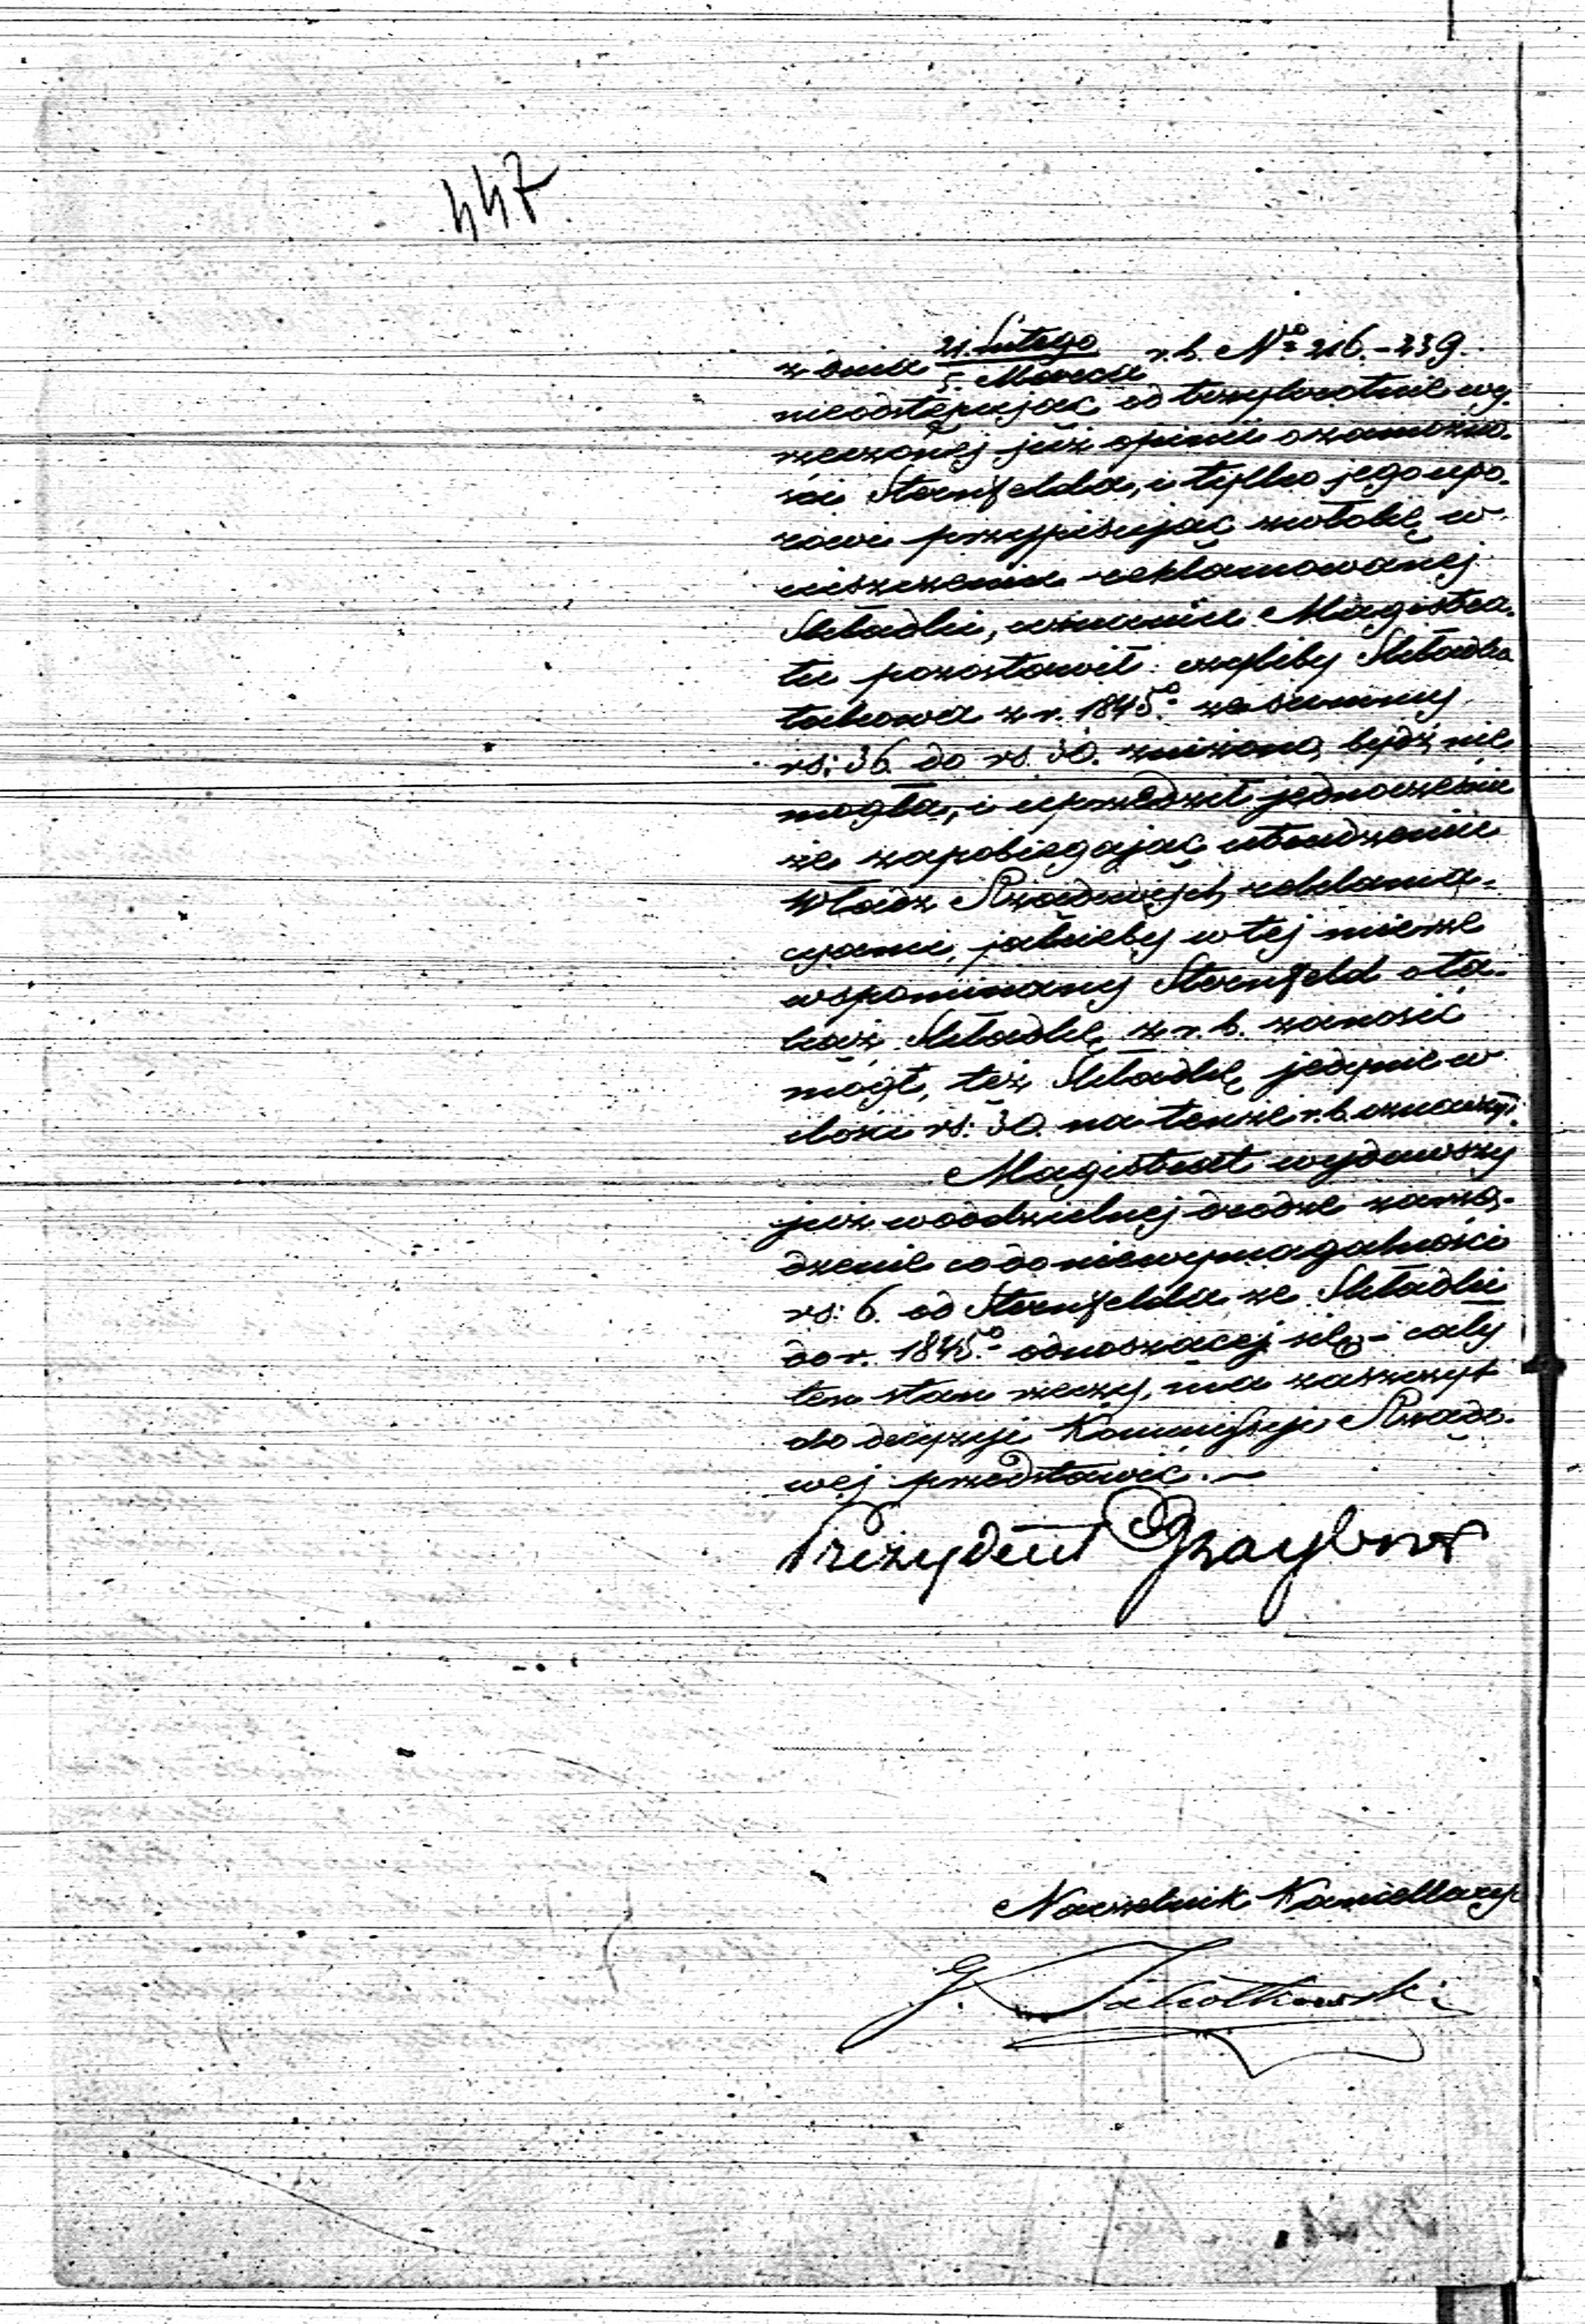 447
z dnia 21. Lutego / 5. Marca r. b. No 216.-239.
nieodstępując od trzykrotnie wy-
rzeczonej już opinii o zamożno-
ści Sternfelda, i tylko jego upo-
rowi przypisując zwłokę w
uiszczeniu reklamowanej
Składki, uznaniu Magistra-
tu pozostawił: czyliby Składka
takowa z r. 1845o ze summy
rs: 36. do rs. 30. zniżoną bydź nie
mogła, i uprzedził jednocześnie
że zapobiegając utrudzeniu
Władz Rządowych reklama-
cyami, jakieby w tej mierze
wspominany Sternfeld o ta-
kąż Składkę z r. b. zanosić
mógł, też Składkę jedynie w
ilości rs: 30. na tenże r. b. oznaczył.
Magistrat wydawszy
już w oddzielnej drodze zarzą-
dzenie co do niewymagalności
rs: 6. od Sternfelda ze Składki
do r. 1845o odnoszącej się - cały
ten stan rzeczy, ma zaszczyt
do decyzji Kommissyi Rządo-
wej przedstawić. ~
Prezydent
Naczelnik Kancellaryi